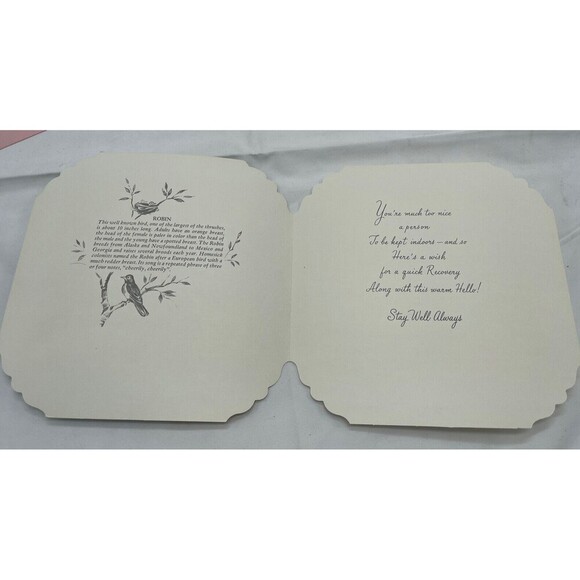 ROBIN
This well-known bird, one of the largest of the thrushes,
is about 10 inches long. Adults have an orange breast,
the head of the female is paler in color than the head of
the male and the young have a spotted breast. The Robin
breeds from Alaska and Newfoundland to Mexico and
Georgia and raises several broods each year. Homesick
colonists named the Robin after a European bird with a
much redder breast. Its song is a repeated phrase of three
or four notes, "cheerily, cheerily".
You're much too nice
a person
To be kept indoors—and so
Here's a wish
for a quick Recovery
Along with this warm Hello!
Stay Well Always